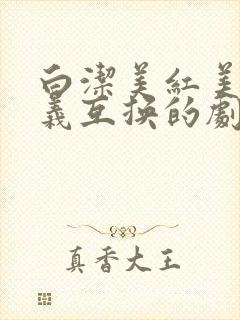 白潔美紅美
義互換的劇
真香大王